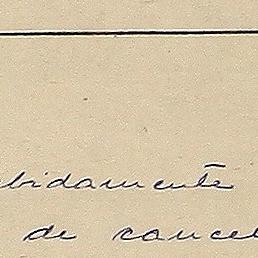 ebidamente
de cancel